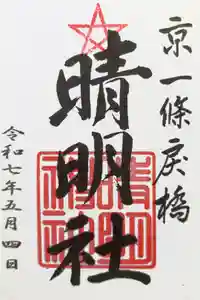 京一條戻橋
晴明社
晴明神社
令和七年五月四日